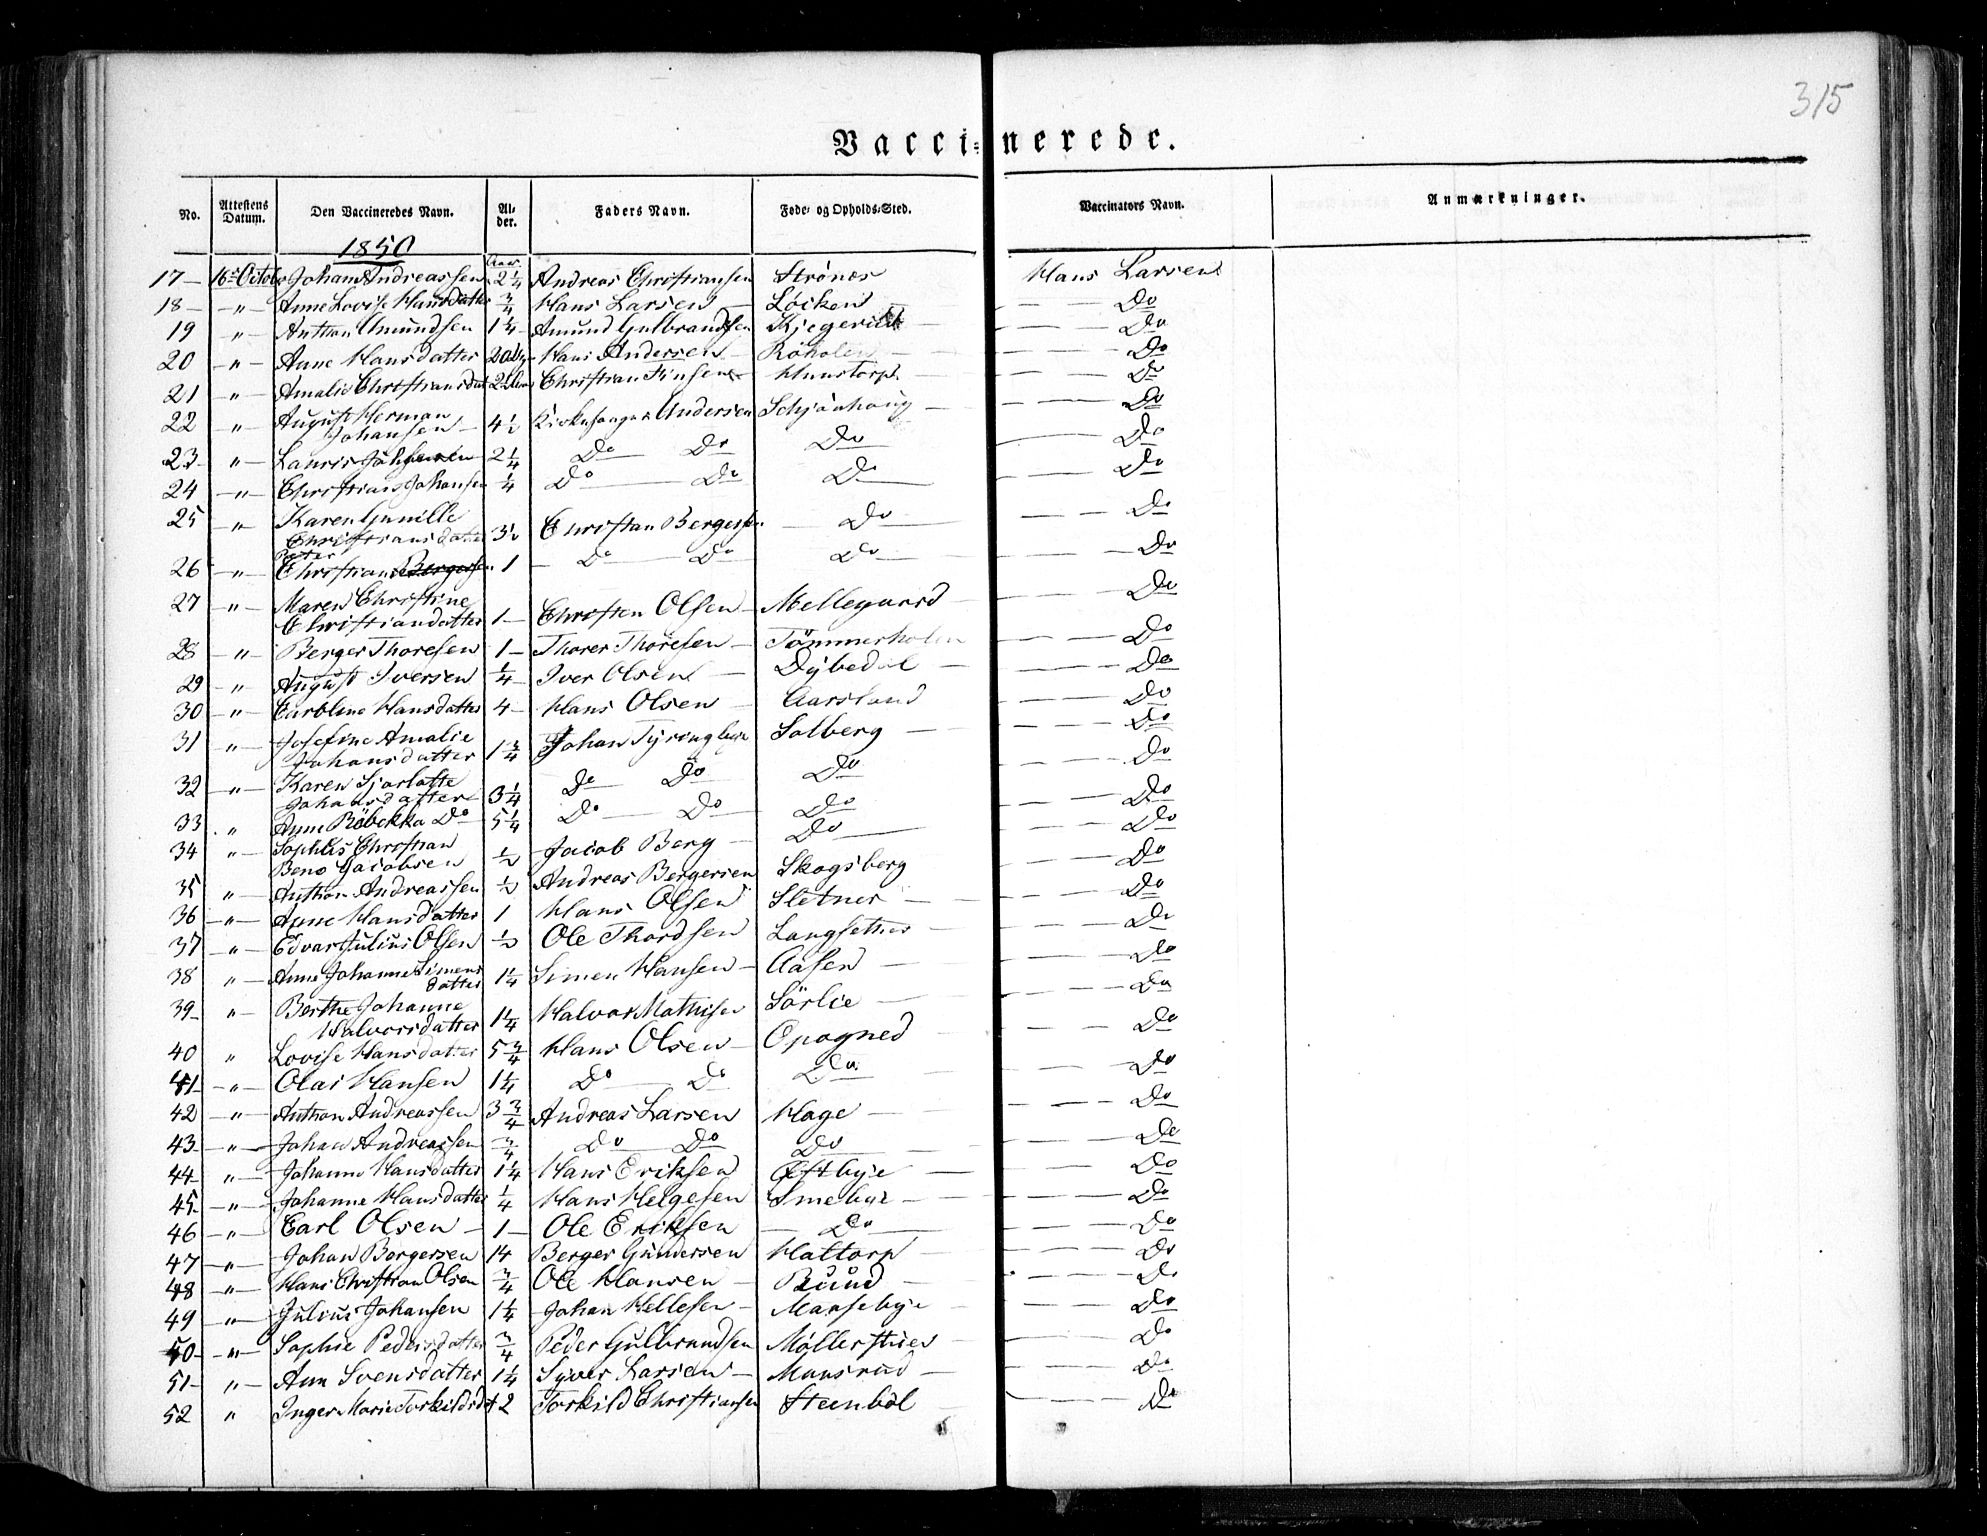 315
Vaccinerede.
No. Attestens Datum. Den Vaccineredes Navn. Alder. Faders Navn. Føde- og Opholds-Sted. Vaccinators Navn. Anmærkninger.
1850
Aar
17 – 16de Octob Johan Andreassen 2 1/4 Andreas Christiansen Strønes Hans Larsen
18 – " – Anne Lovise Hansdatter 3/4 Hans Larsen – Løcken – Do
19 " – Anthon Amundsen 1 1/4 Amund Gulbrandsen – Do
20 – " – Anne Hansdatter Hans Andersen – Røholen – Do
21 – " – Amalie Christiansdat Christian Finsen Hunstorp Do
22 " – August Herman
Johansen – 4 1/2 Kirkesanger Andersen Schjønhaug – Do
23 – " – Lauris Johansen 2 1/4 Do Do Do Do
24 – " – Christians Johansen 1/4 Do Do Do Do
25 " – Karen Gunille
Christiansdatter 3 1/2 Christian Bergersen – Do Do
Peter
26 – " – Christians Bergersen 1 – Do Do Do Do
27 " – Maren Christine
Christiandatter 1 – Christen Olsen – Mellegaard Do
28 – " – Berger Thoresen 1 – Thorer Thoresen – Tömmerholen Do
29 " – August Iversen 1/4 Iver Olsen – Dybedal – Do
30 – " – Caroline Hansdatter 4 – Hans Olsen – Aarsland Do
31 " – Josefine Amalie
Johansdatter 1 3/4 Johan Solberg – Do
32 – " – Karen Sjarlotte
Johansdatter 3 1/4 Do Do Do Do
33 . " Anne Räbekka Do 5 1/4 Do Do Do Do
34 " – Sophus Christian
Beno Jacobsen 1/2 Jacob Berg – Do Do
35 " Anthon Andreassen 1/2 Andreas Bergersen Skogsberg Do
36 – " – Anne Hansdatter 1 Hans Olsen Sletner – Do
37 " – Edvar Julius Olsen 1/2 Ole Thordsen Langsether – Do
38 " – Anne Johanne Simens
datter 1 1/4 Simen Hansen – Aasen – Do
39 – " – Berthe Johanne
Halvorsdatter 1 1/4 Halvor Mathisen Sörlie – Do
40 " Lovise Hansdatter 5 3/4 Hans Olsen – Opogned Do
41 – " – Olai Hansen 1 1/4 Do Do Do Do
42 – " – Anthon Andreassen 3 3/4 Andreas Larsen Hage – Do
43 – " – Johan Andreassen 3/4 Do Do Do – Do
44 – " – Johanne Hansdatter 1 1/4 Hans Eriksen Østbye – Do
45 – " – Johanne Hansdatter 1/4 Hans Helgesen Smebye – Do
46 – " – Carl Olsen – 1 – Ole Eriksen Do Do
47 – " – Johan Borgersen 14 Berger Gundersen Hattorp – Do
48 – " – Hans Christian Olsen 3/4 Ole Hansen – Ruud – Do
49 – " – Julius Johansen 1 1/4 Johan Hellesen – – Do
50 – " – Sophie Pedersdatter 3/4 Peder Gulbrandsen Do
51 – " – Ann Svensdatter 1 1/4 Syver Larsen – Mansrud – Do
52 " Inger Marie 2 Torkild Christiansen Steenböl Do